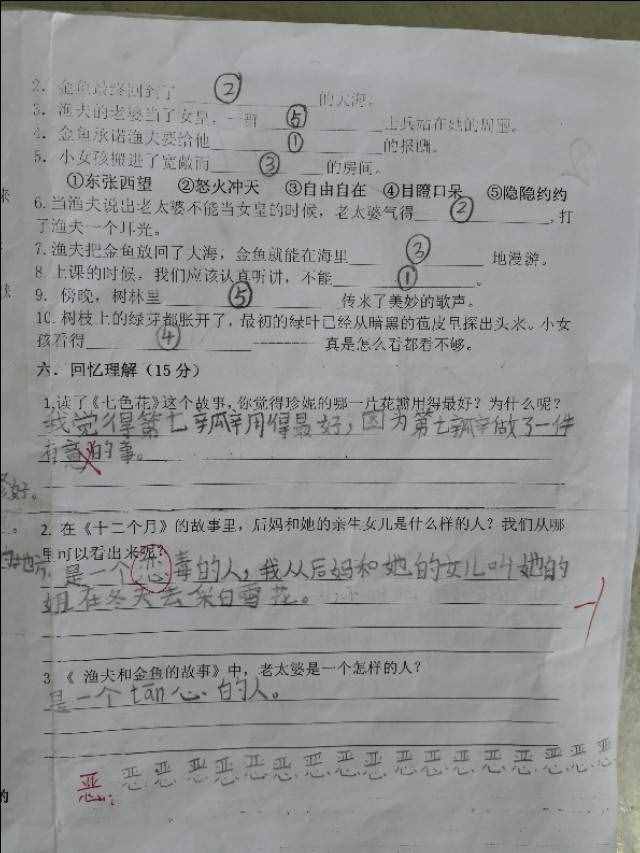 2. 金鱼最终回到了 ② 的大海。
3. 渔夫的老婆当了女皇，一群 ⑤ 士兵站在她的周围。
4. 金鱼承诺渔夫要给他 ① 的报酬。
5. 小女孩搬进了宽敞而 ③ 的房间。
①东张西望 ②怒火冲天 ③自由自在 ④目瞪口呆 ⑤隐隐约约
6.当渔夫说出老太婆不能当女皇的时候，老太婆气得 ② ，打
了渔夫一个耳光。
7.渔夫把金鱼放回了大海，金鱼就能在海里 ③ 地漫游。
8.上课的时候，我们应该认真听讲，不能 ① 。
9. 傍晚，树林里 ⑤ 传来了美妙的歌声。
10.树枝上的绿芽都胀开了，最初的绿叶已经从暗黑的苞皮里探出头来。小女
孩看得 ④ 真是怎么看都看不够。
六．回忆理解（15分）
1.读了《七色花》这个故事，你觉得珍妮的哪一片花瓣用得最好？为什么呢？
我觉得第七瓣用得最好，因为第七瓣做了一件
有意的事。
2. 在《十二个月》的故事里，后妈和她的亲生女儿是什么样的人？我们从哪
里可以看出来呢？
是一个恶毒的人，我从后妈和她的女儿叫她的
姐在冬天去采白雪花。
3.《 渔夫和金鱼的故事》中，老太婆是一个怎样的人？
是一个tān心的人。
恶: 恶 恶 恶 恶 恶 恶 恶 恶 恶 恶 恶 恶 恶 恶 恶 恶 恶